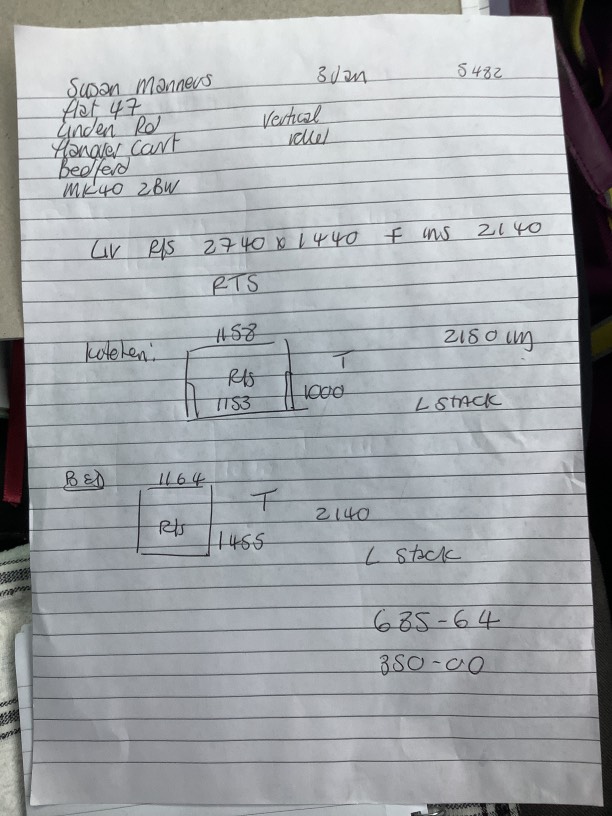 Susan Manners 3 Jan 5482
flat 47
Linden Rd Vertical
Hanover Court
Bedford
MK40 2BW
Liv R/s 2740 x 1440 F ins 2140
RTS
1158
Kitchen: 2150 ins
R/s T
1153 1000
L STACK
BED 1164
T
R/s 2140
1455
L Stack
635-64
350-00